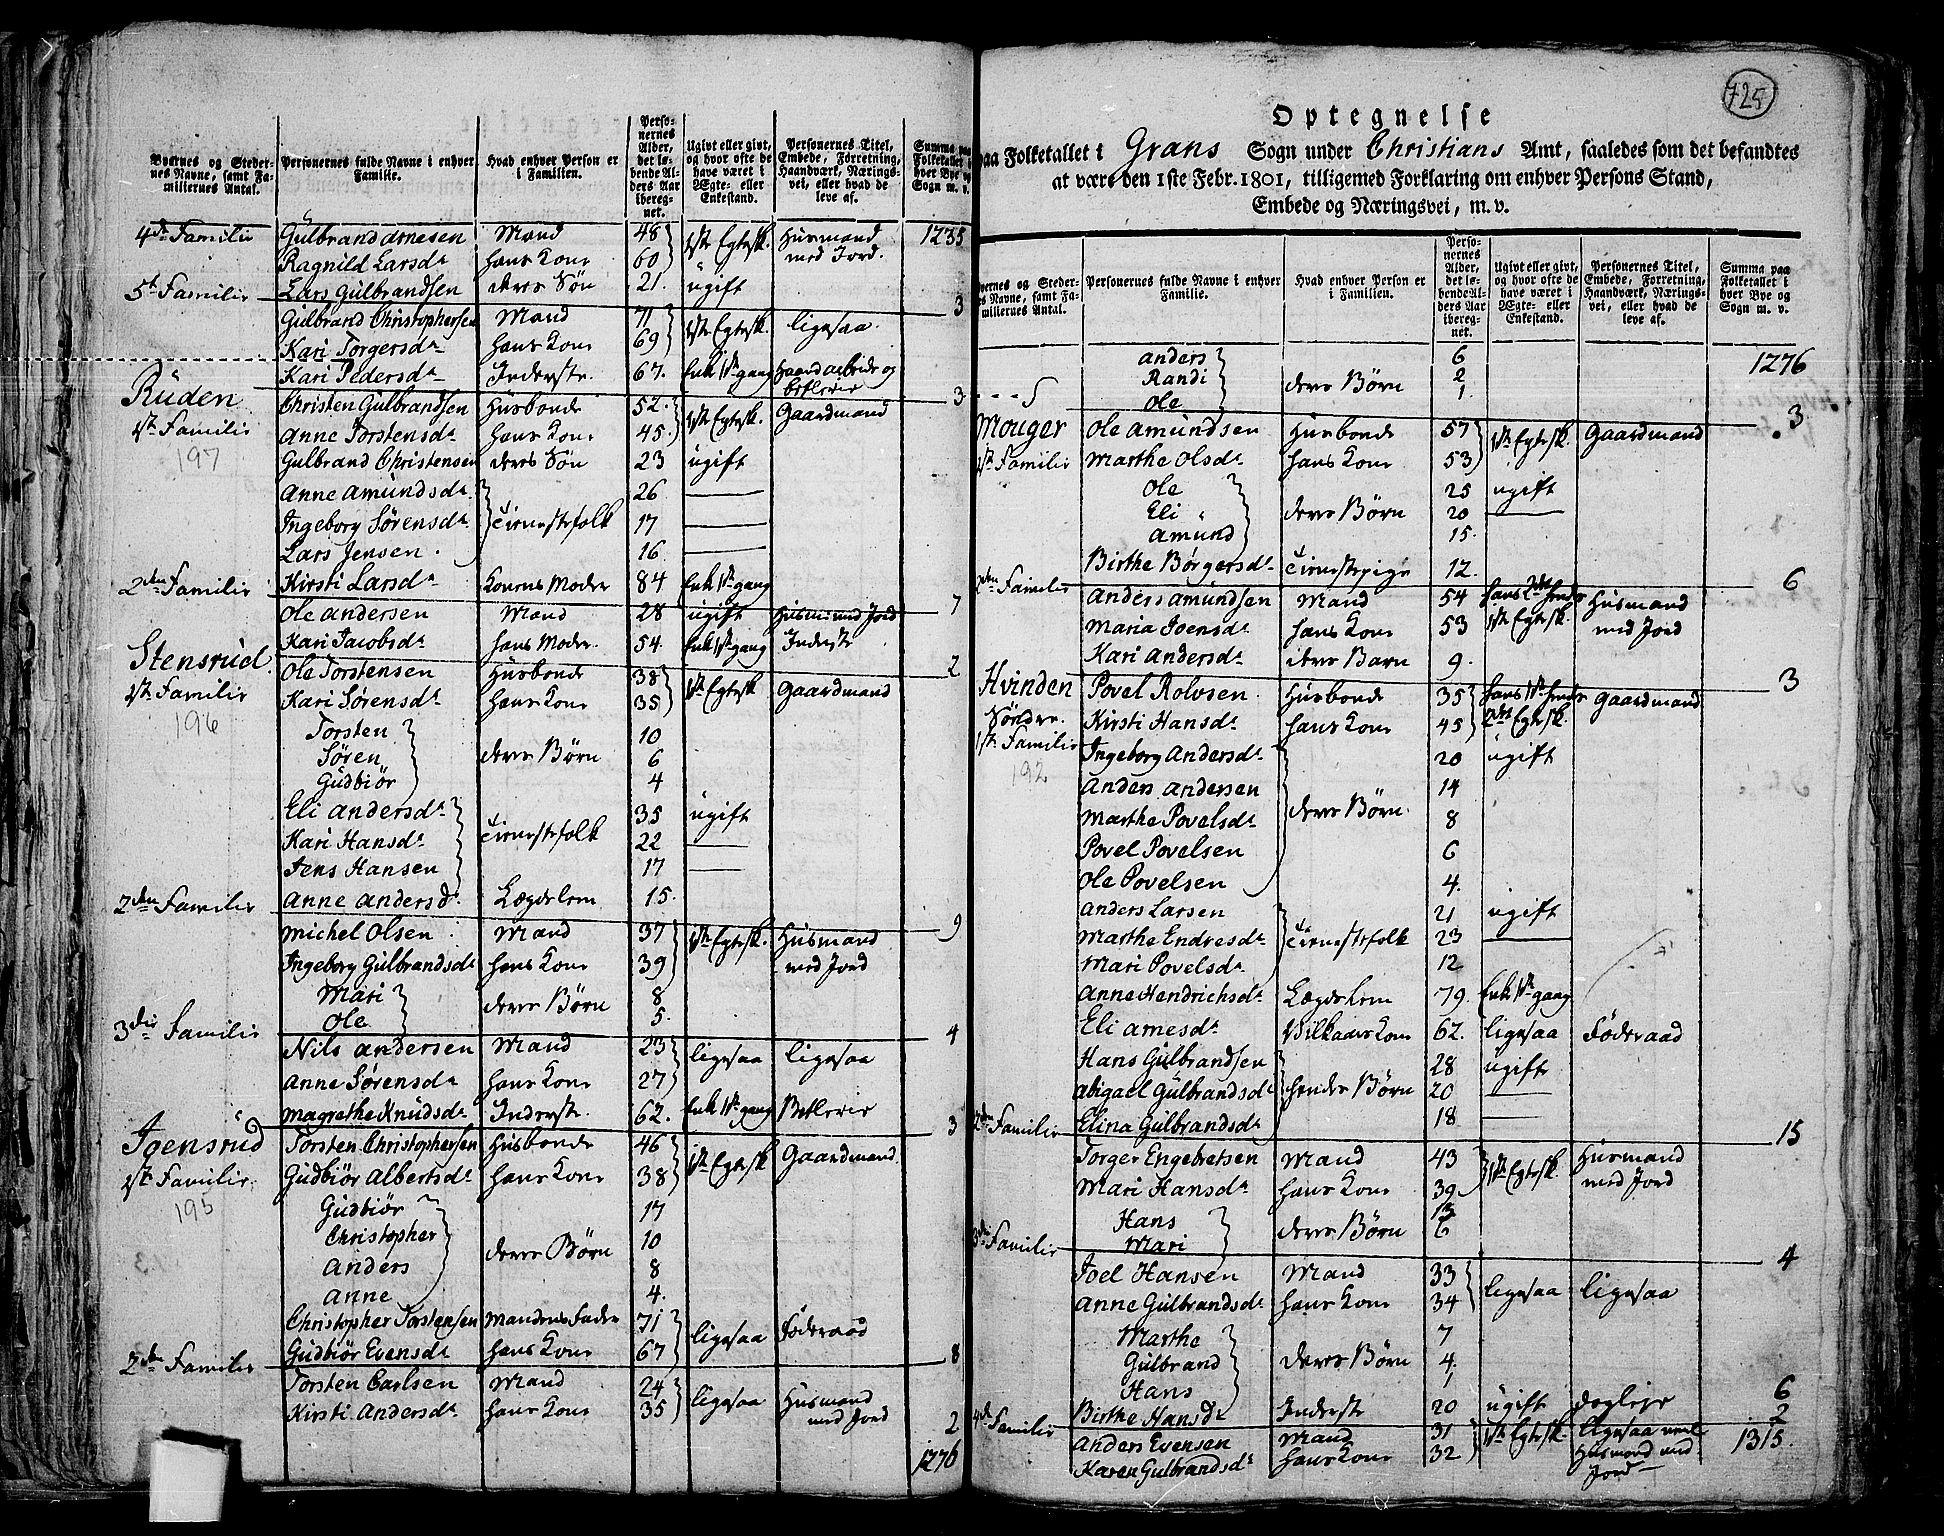 Byernes og Steder-
nes Navne, samt Fa-
miliernes Antal.
Personernes fulde Navne i enhver
Familie.
Hvad enhver Person er
i Familien.
Perso-
nernes
Alder,
det lø-
bende Al-
ders Aar
ibereg-
net.
Ugivt eller givt,
og hvor ofte de
have været i
Ægte- eller
Enkestand.
Personernes Titel,
Embede, Forretning,
Haandværk, Nærings-
vei, eller hvad de
leve af.
Summa paa
Folketallet i
hver Bye og
Sogn m. v.
4de Familie Gulbrand Arnesen Mand 48 1ste Egtesk. Huusmand med Jord. 1235
Ragnild Larsdr hans Kone 60
Lars Gulbrandsen deres Søn 21. ugift 3
5te Familie Gulbrand Christophersen Mand 71 1ste Egtesk. ligesaa.
Kari Torgersdr hans Kone 69
Kari Pedersdr Inderste. 67. Enke 1ste gang Haandarbeide og betlerie 3
Ruden
1ste Familie Christen Gulbrandsen Husbonde 52. 1ste Egtesk. Gaardmand
197
Anne Torstensdr hans Kone 45.
Gulbrand Christensen deres Søn 23 ugift
Anne Amundsdr 26 —
Ingeborg Sørensdr Tienestefolk 17 —
Lars Jensen. 16 —
Kirsti Larsdr Konens Moder 84 Enke 1ste gang 7
2den Familie Ole Andersen Mand 28 ugift Husm: med Jord
Kari Jacobsdr hans Moder. 54. Enke 1ste gang Inderste 2
Stensrud.
1ste Familie Ole Torstensen Husbonde 38 1ste Egtesk. Gaardmand
196
Kari Sørensdr hans Kone 35
Torsten 10
Søren deres Børn 6
Gudbiør 4
Eli Andersdr 35 ugift
Kari Hansdr Tienestefolk 22 —
Jens Hansen 17 —
Anne Andersd. Lægdslem 15. 9
2den Familie Michel Olsen Mand 37 1ste Egtesk. Husmand med Jord
Ingeborg Gulbrandsdr hans Kone 39
Mari deres Børn 8
Ole 5. 4
3die Familie Nils Andersen Mand 23 ligesaa ligesaa
Anne Sørensdr hans Kone 27
Magrethe Knudsdr Inderste. 62. Enke 1ste gang Betlerie 3
Joensrud
1ste Familie. Torsten Christophersen Husbonde 46 1ste Egtesk Gaardmand
195
Gudbiør Albertsdr hans Kone 38
Gudbiør 17
Christopher deres Børn 10
Anders 8
Anne 4.
Christopher Torstensen Mandens Fader 71 ligesaa Føderaad
Gudbiør Evensdr hans Kone 67 8
2den Familie Torsten Carlsen Mand 24 ligesaa Husmand med Jord
Kirsti Andersdr hans Kone 35 2
1276
725
Optegnelse
paa Folketallet i Grans Sogn under Christians Amt, saaledes som det befandtes
at være den 1ste Febr. 1801, tilligemed Forklaring om enhver Persons Stand,
Embede og Næringsvei, m. v.
Byernes og Steder-
nes Navne, samt Fa-
miliernes Antal.
Personernes fulde Navne i enhver
Familie.
Hvad enhver Person er
i Familien.
Perso-
nernes
Alder,
det lø-
bende Al-
ders Aar
iberegnet.
Ugivt eller givt,
og hvor ofte de
have været i
Ægte- eller
Enkestand.
Personernes Titel,
Embede, Forretning,
Haandværk, Nærings-
vei, eller hvad de
leve af.
Summa paa
Folketallet i
hver Bye og
Sogn m. v.
Anders 6 1276
Randi deres Børn 2
Ole 1. 3
Mouger
1ste Familie Ole Amundsen Husbonde 57 1ste Egtesk. Gaardmand
Marthe Olsdr hans Kone 53
Ole 25 ugift
Eli deres Børn 20 —
Amund 15.
Birthe Børgersdr Tienestepige 12. 6
2den Familie Anders Amundsen Mand 54 hans 2det hendes 1ste Egtesk. Husmand med Jord
Maria Joensdr hans Kone 53
Kari Andersdr deres Barn 9. 3
Hvinden
Søndre.
1ste Familie Povel Rolvsen Husbonde 35 hans 1ste hendes 2det Egtesk. Gaardmand
192
Kirsti Hansdr hans Kone 45
Ingeborg Andersdr 20 ugift
Anders Andersen 14
Marthe Povelsdr deres Børn. 8
Povel Povelsen 6
Ole Povelsen 4.
Anders Larsen 21 ugift
Marthe Endresdr Tienestefolk 23 —
Mari Povelsdr 12
Anne Hendrichsdr Lægdslem 79. Enke 1ste gang
Eli Arnesdr Vilkaars Kone 62. ligesaa Føderaad
Hans Gulbrandsen 28 ugift
Abigael Gulbrandsdr hendes Børn 20 —
Elina Gulbrandsdr 18 — 15
2den Familie Torger Engebretsen Mand 43 1ste Egtesk. Husmand med Jord
Mari Hansdr hans Kone 39
Hans deres Børn 13
Mari 6 4
3die Familie Joel Hansen Mand 33 ligesaa ligesaa
Anne Gulbrandsdr hans Kone 34
Marthe 7
Gulbrand deres Børn 4.
Hans 1
Birthe Hansdr Inderste 20 ugift Dagleje 6
4de Familie Anders Evensen Mand 31 1ste Egtesk. ligesaa Husmand med Jord 2
Karen Gulbrandsdr hans Kone 32 1315.